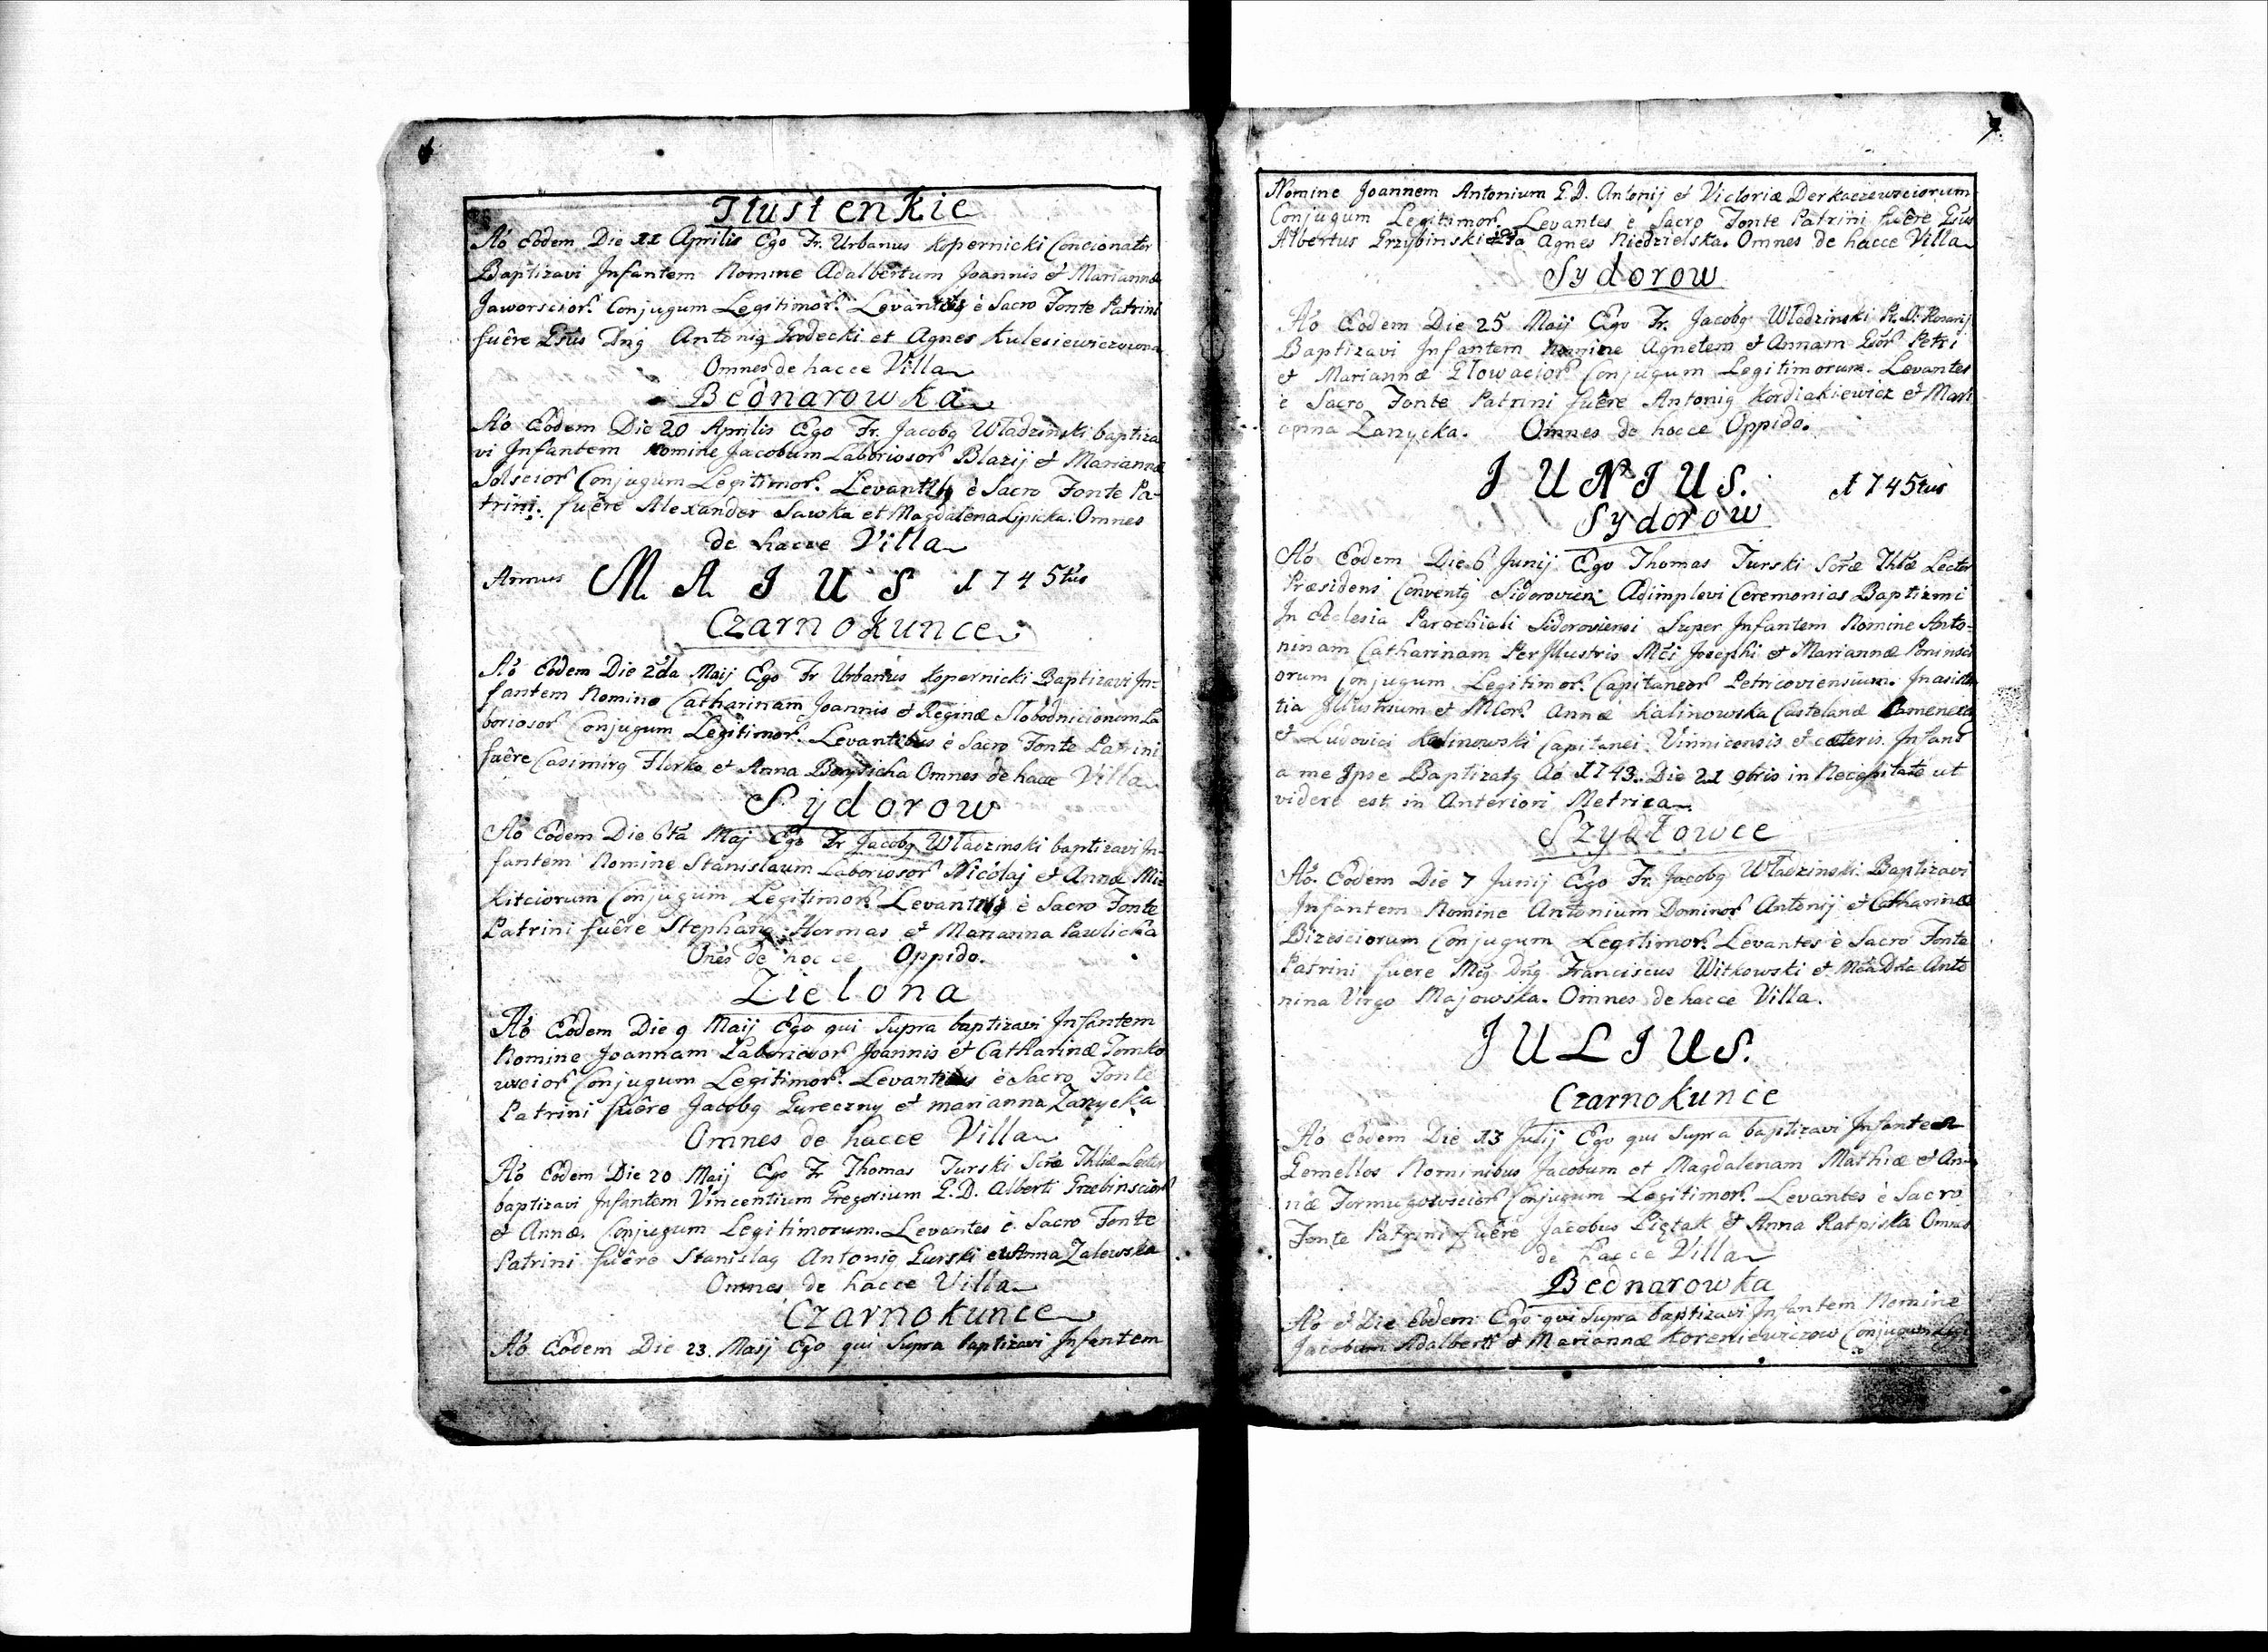 Tłustenkie
Aō Eodem Die 11 Aprilis Ego Fr. Urbanus Kopernicki Concionator
Baptizavi Infantem Nomine Adalbertum Joannis et Mariannæ
Jaworscior. Conjugum Legitimor. Levantes è Sacro Fonte Patrini
fuêre Gsus Dnq Antoniq Grodecki et Agnes Kulesiewiczowna
Omnes de hacce Villa
Bednarowka
Aō Eodem Die 20 Aprilis Ego Fr. Jacobq Władzinski baptiza
vi Infantem Nomine Jacobum Laboriosor Blazij et Mariannæ
Solscior Conjugum Legitimor. Levantes è Sacro Fonte Pa-
trini. fuêre Alexander Sawka et Magdalena Lipicka. Omnes
de hacce Villa
Annus MAJUS 1745tus
Czarnokunce
Aō Eodem Die 2da Maij Ego Fr Urbanus Kopernicki Baptizavi In-
fantem Nomine Catharinam Joannis et Reginæ Slobodniciorum La
boriosor Conjugum Legitimor. Levantibus è Sacro Fonte Patrini
fuêre Casimirq Florko et Anna Omnes de hacce Villa
Sydorow
Aō Eodem Die 6ta Maj Ego Fr Jacobq Władzinski baptizavi In-
fantem Nomine Stanislaum Laboriosor Nicolaj et Annæ Mi
kitciorum Conjugum Legitimor. Levantes è Sacro Fonte
Patrini fuêre Stephanq Hormas et Marianna Pawlicka
Onēs de hocce Oppido.
Zielona
Aō Eodem Die 9 Maij Ego qui Supra baptizavi Infantem
Nomine Joannam Laboriosor Joannis et Catharinæ Tomko
wscior Conjugum Legitimor. Levantibus è Sacro Fonte
Patrini fuêre Jacobq Gureczny et marianna Zanycka
Omnes de hacce Villa
Aō Eodem Die 20 Maij Ego Fr Thomas Turski Scræ Thlæ Lector
baptizavi Infantem Vincentium Gregorium G.D. Alberti Grzebinscior
et Annæ. Conjugum Legitimorum. Levantes è Sacro Fonte
Patrini fuêre Stanislaq Antoniq Gurski et Anna Zalewska
Omnes de hacce Villa
Czarnokunce
Aō Eodem Die 23. Maij Ego qui Supra baptizavi Infantem
Nomine Joannem Antonium G.D. Antonij et Victoriæ Derkaczewsciorum
Conjugum Legitimor. Levantes è Sacro Fonte Patrini fuêre Gsus
Albertus Grzybinski Agnes Niedzielska. Omnes de hacce Villa
Sydorow
Aō Eodem Die 25 Maij Ego Fr. Jacobq Władzinski Pr. St. Rosarij
Baptizavi Infantem Nomine Agnetem et Annam Gsor Petri
et Mariannæ Głowacior Conjugum Legitimorum. Levantes
è Sacro Fonte Patrini fuêre Antoniq Kordiakiewicz et Mari
anna Zanycka. Omnes de hocce Oppido.
JUNJUS. 1745tus
Sydorow
Aō Eodem Die 6 Junij Ego Thomas Turski Scræ Thlæ Lector
Præsidens Conventq Sidorovien Adimplevi Ceremonias Baptizmi
In Ecclesia Parochiali Sidoroviensi Super Infantem Nomine Anto-
ninam Catharinam Per Jllustris Mci Josephi et Mariannæ Poninsci
orum Conjugum Legitimor. Capitaneor Petricoviensium. Jnasisten
tia Jllustrium et Mcor. Annæ Kalinowska Castelanæ Camenecen
et Ludovici Kalinowski Capitanei Vinnicensis et cæteris. Infans
a me Jpse Baptizatq Aō 1743. Die 21 9bris in Necessitate ut
videre est in Anteriori Metrica
Szydłowce
Aō. Eodem Die 7 Junij Ego Fr. Jacobq Władzinski. Baptizavi
Infantem Nomine Antonium Dominor Antonij et Catharinæ
Bizesciorum Conjugum Legitimor. Levantes è Sacro Fonte
Patrini fuere Mcq Dnq Franciscus Witkowski et Mca Dna Anto
nina Virgo Majowska. Omnes de hacce Villa.
JULJUS.
Czarnokunce
Aō Eodem Die 13 Julij Ego qui Supra baptizavi Infantem
Gemellos Nominibus Jacobum et Magdalenam Mathiæ et An-
næ Conjugum Legitimor. Levantes è Sacro
Fonte Patrini fuêre Jacobus Piętak et Anna Ratpiska Omnes
de hacce Villa
Bednarowka
Aō et Die Eodem Ego qui Supra baptizavi Infantem Nomine
Jacobum Adalberti et Mariannæ Koreniewiczow Conjugum Legi